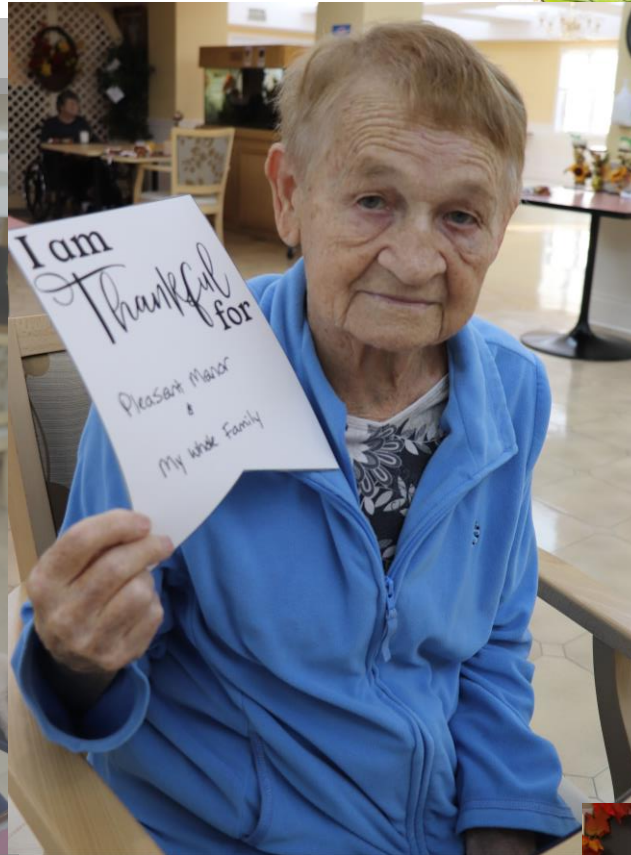 I am
Thankful
for
Pleasant Manor
&
My Whole Family